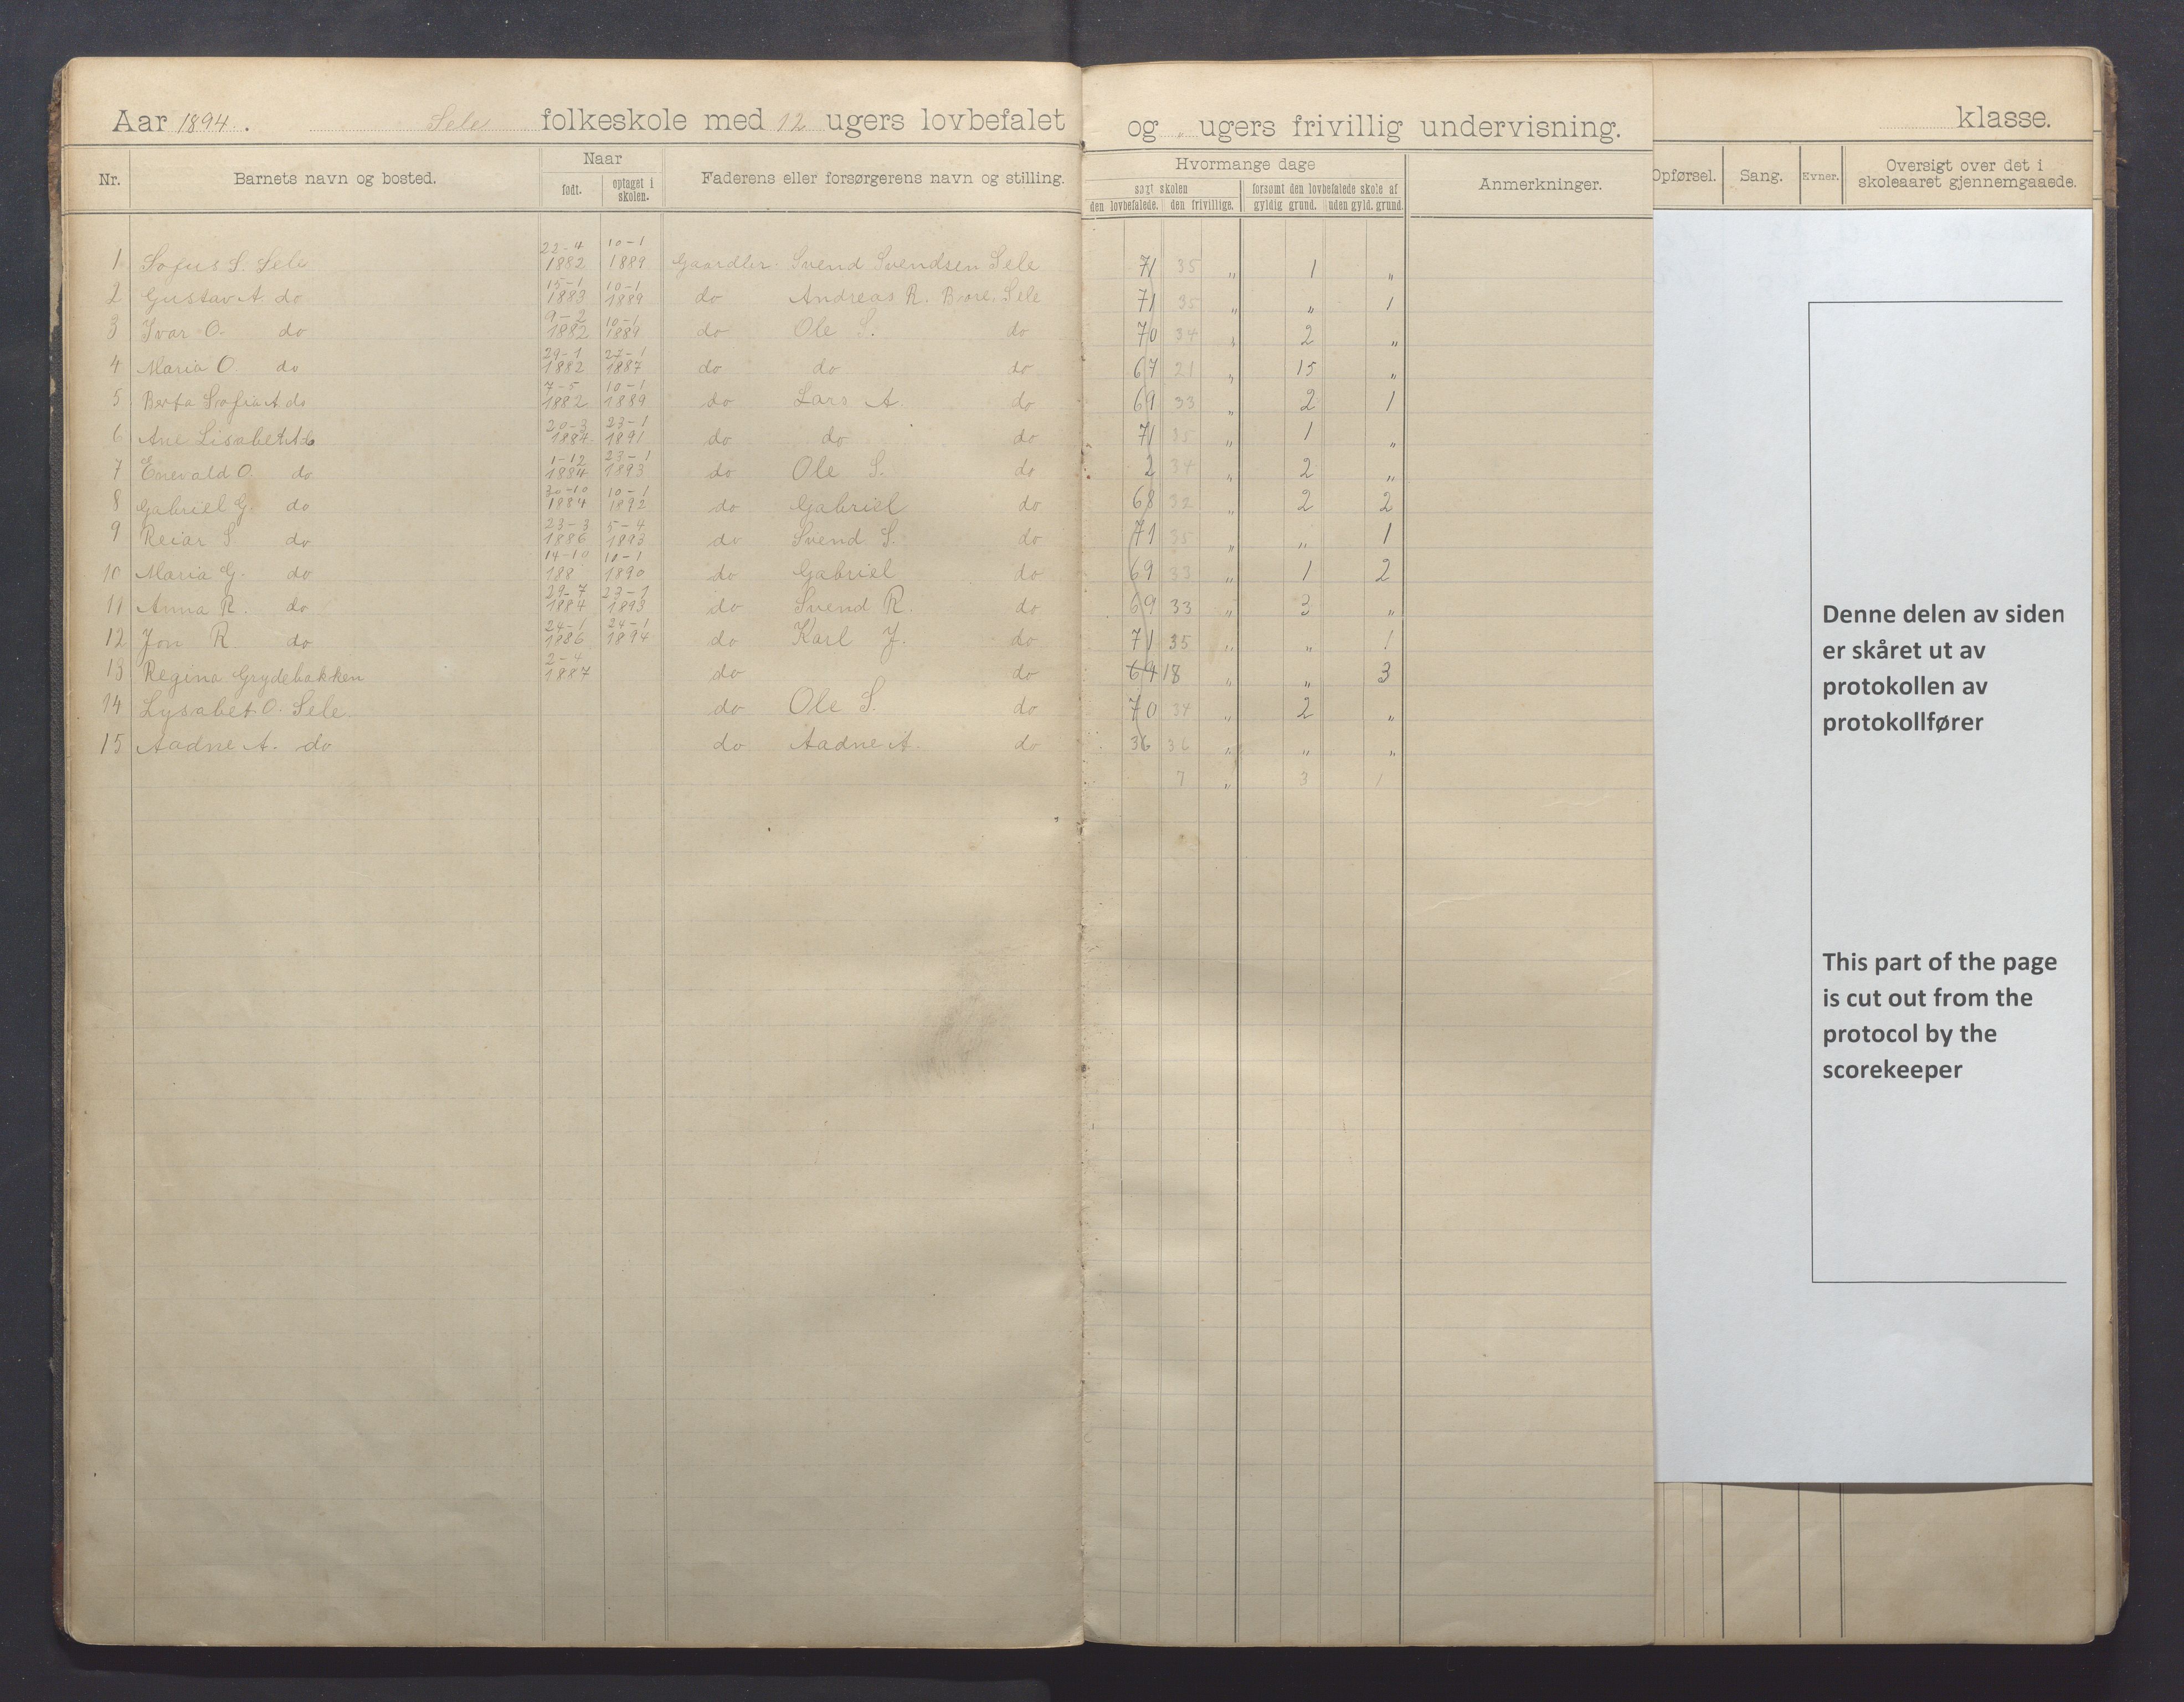 Aar 1894. Sele folkeskole med 12 ugers lovbefalet og „ ugers frivillig undervisning. klasse.
Nr. Barnets navn og bosted. Naar født. optaget i skolen. Faderens eller forsørgerens navn og stilling. Hvormange dage søgt skolen den lovbefalede. den frivillige. forsømt den lovbefalede skole af gyldig grund. uden gyld. grund. Anmerkninger. Opførsel. Sang. Evner. Oversigt over det i skoleaaret gjennemgaaede.
1 Sofus S. Sele 22-4 1882 10-1 1889 Gaardbr. Svend Svendsen Sele 71 35 „ 1 „
2 Gustav A do 15-1 1883 10-1 1889 do Andreas R. Bore, Sele 71 35 „ „ 1
3 Ivar O. do 9-2 1882 10-1 1889 do Ole S. do 70 34 „ 2 „
4 Maria O do 29-1 1882 27-1 1887 do do do 67 21 „ 15 „
5 Berta Sofia A do 7-5 1882 10-1 1889 do Lars A. do 69 33 „ 2 1
6 Ane Lisabet 20-3 1884 23-1 1891 do do do 71 35 „ 1 „
7 Enevald O. do 1-12 1884 23-1 1893 do Ole S. do 2 34 „ 2 „
8 Gabriel G. do 30-10 1884 10-1 1892 do Gabriel do 68 32 „ 2 2
9 Reiar S do 23-3 1886 5-4 1893 do Svend S. do 71 35 „ „ 1
10 Maria G. do 14-10 188 10-1 1890 do Gabriel do 69 33 „ 1 2
11 Anna R. do 29-7 1884 23-1 1893 do Svend R. do 69 33 „ 3 „
12 Jon R do 24-1 1886 24-1 1894 do Karl J. do 71 35 „ „ 1
13 Regina Grydebakken 2-4 1887 do do 64 18 „ „ 3
14 Lysabet O. Sele do Ole S. do 70 34 „ 2 „
15 Aadne A. do do Aadne A. do 36 36 „ „ „
7 „ 3 1
Denne delen av siden
er skåret ut av
protokollen av
protokollfører
This part of the page
is cut out from the
protocol by the
scorekeeper